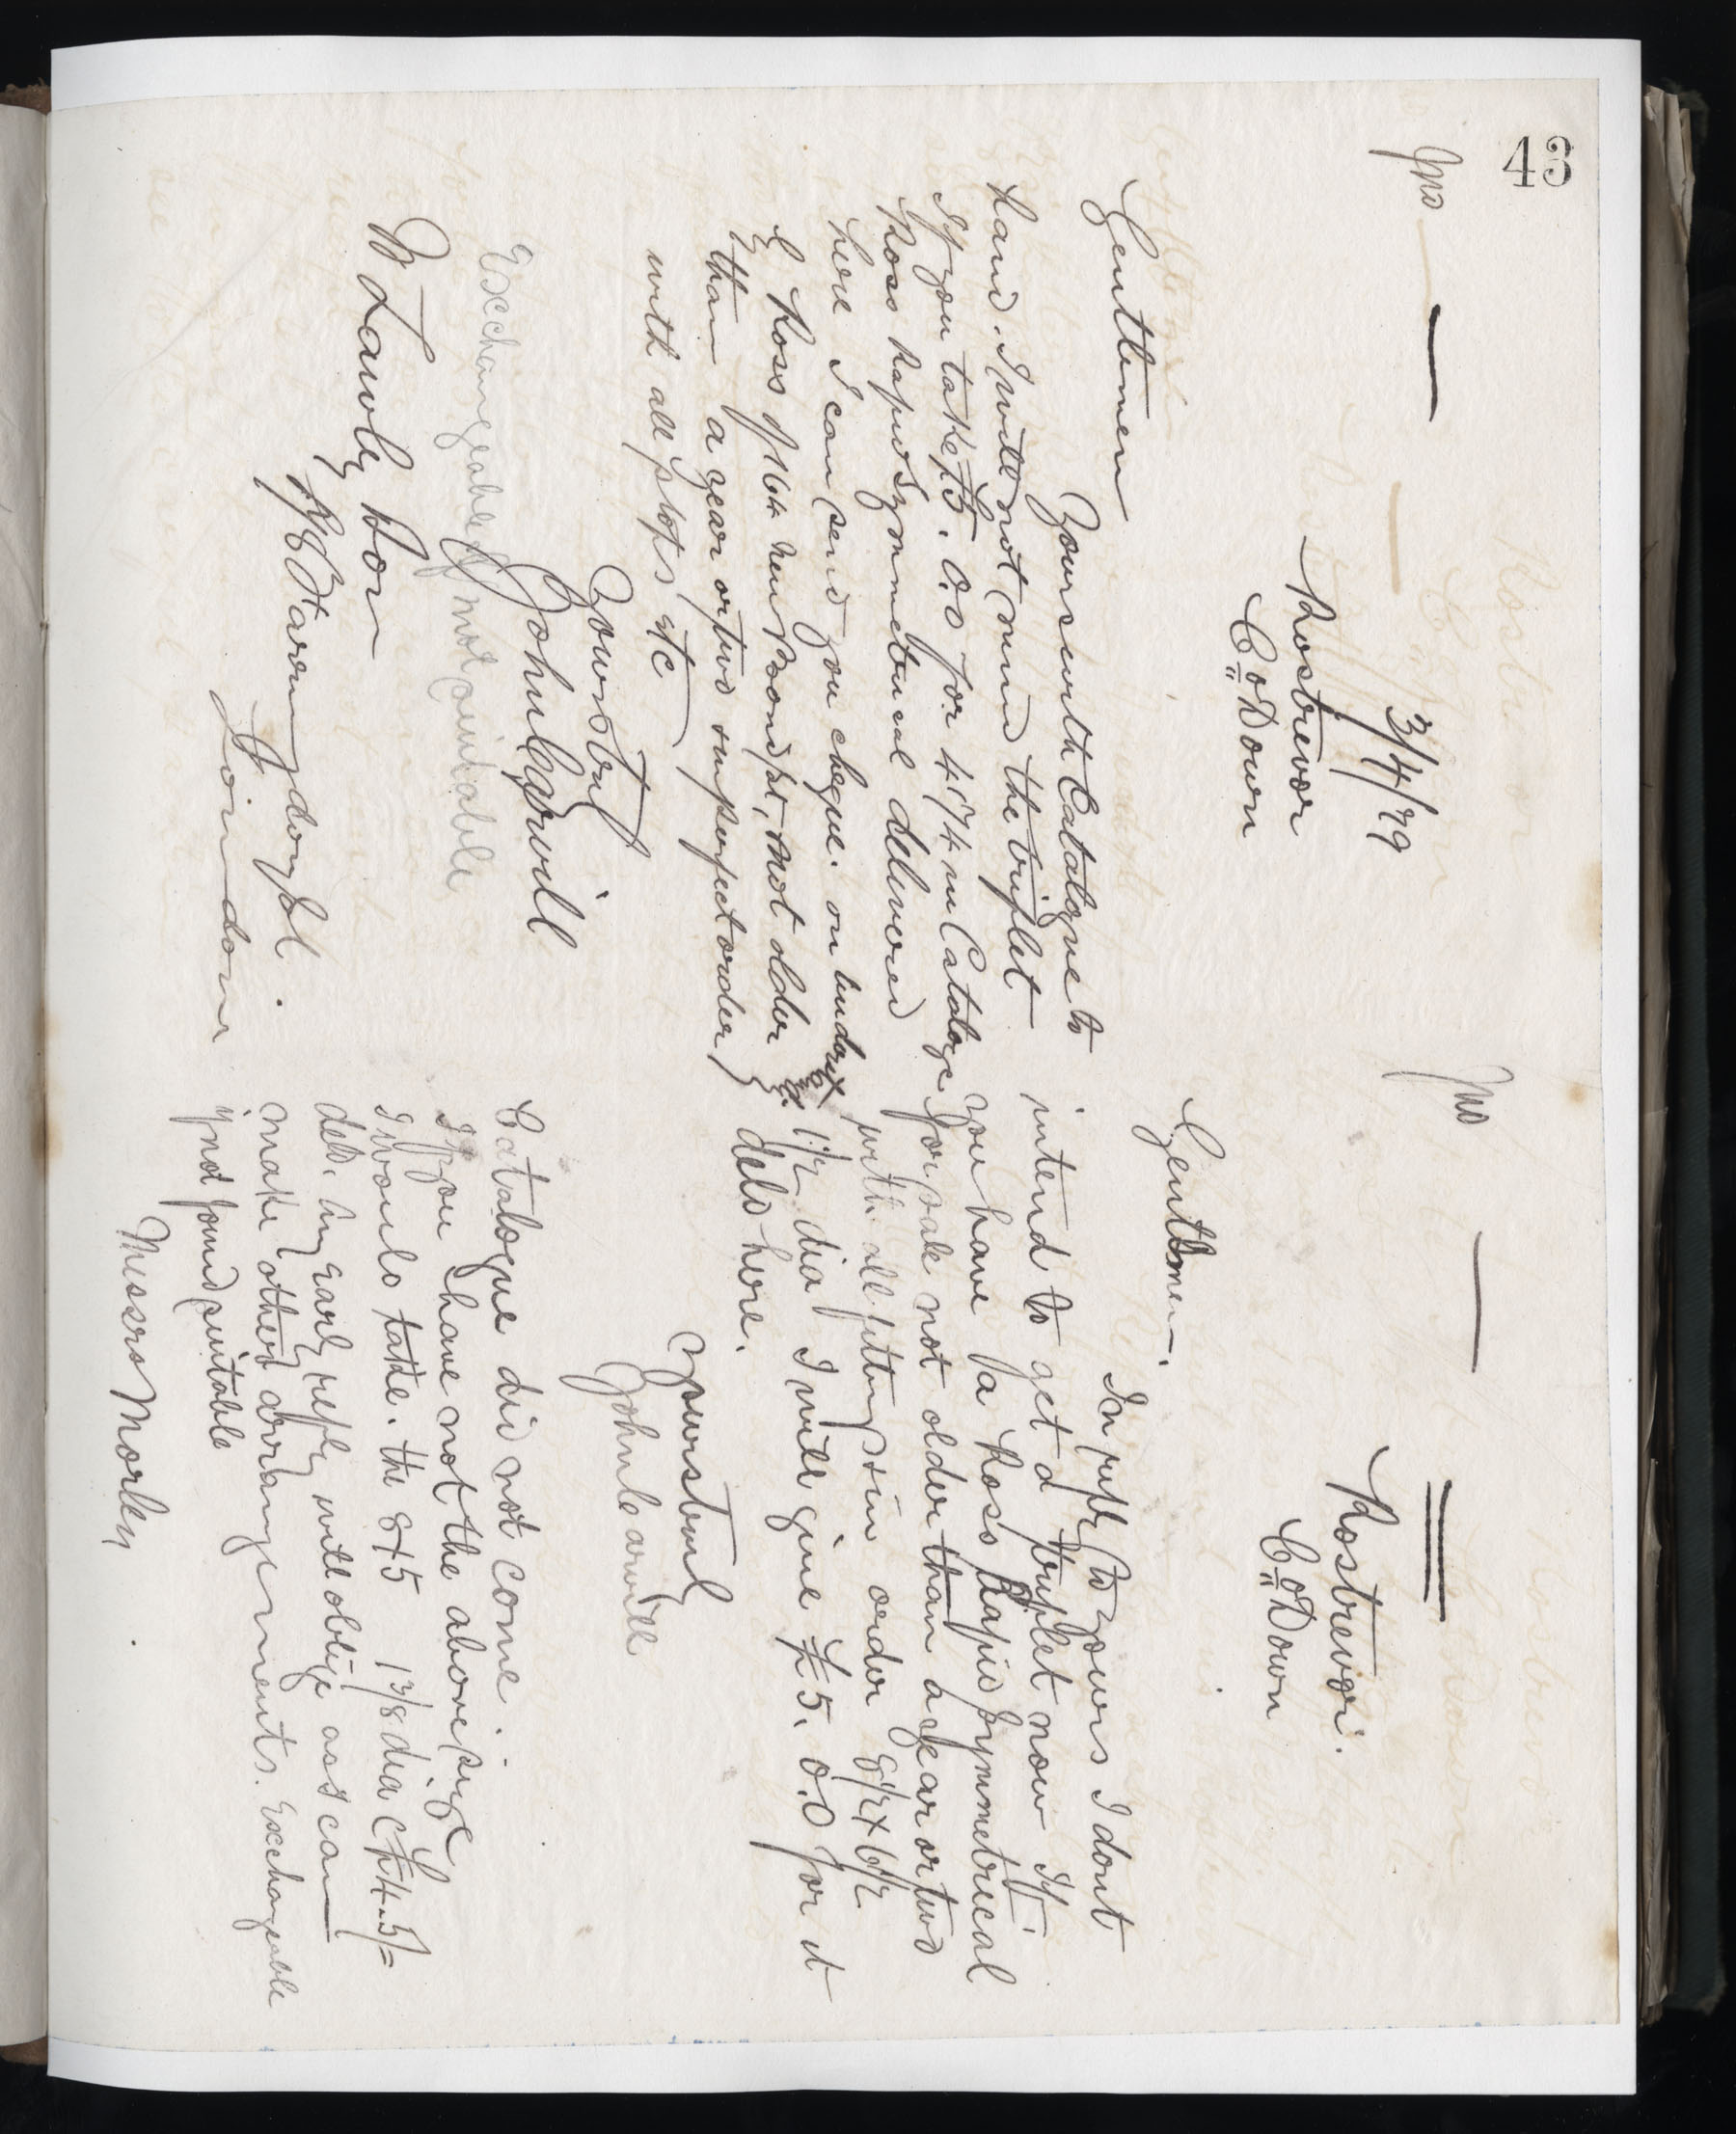 43
Jno
3/4/79
Rostrevor
Co Down
Gentlemen
Yours with Catalogue to
hand. I will not mind the triplet
If you take £5.0.0 for 4074 in Cataloge
Ross Rapid Symmetrical delivered
here I can send you cheque. on
Ross of 164 New Bond st, not older
than a year or two in perfect order
with all stops etc
Yours truly
John Carvill
Exchangeable if not suitable
W Lawley Son
78 Farringdon St.
London
Jno
Rostrevor.
Co Down
Gentlemen.
In reply to yours I dont
intend to get a triplet now If
you have a Ross Rapid Symmetrical
for sale not older than a year or two
with all fittings in order 8½ x 6½
1½ dia I will give £5.0.0 for it
deld here.
Yours truly
John Carvill
Catalogue did not come.
If you have not the above size
I would take. the 8x5 1 3/8 dia @ £4.5/=
deld. An early reply will oblige as I can
make other arrangements. Exchangeable
if not found suitable
Messrs Morley